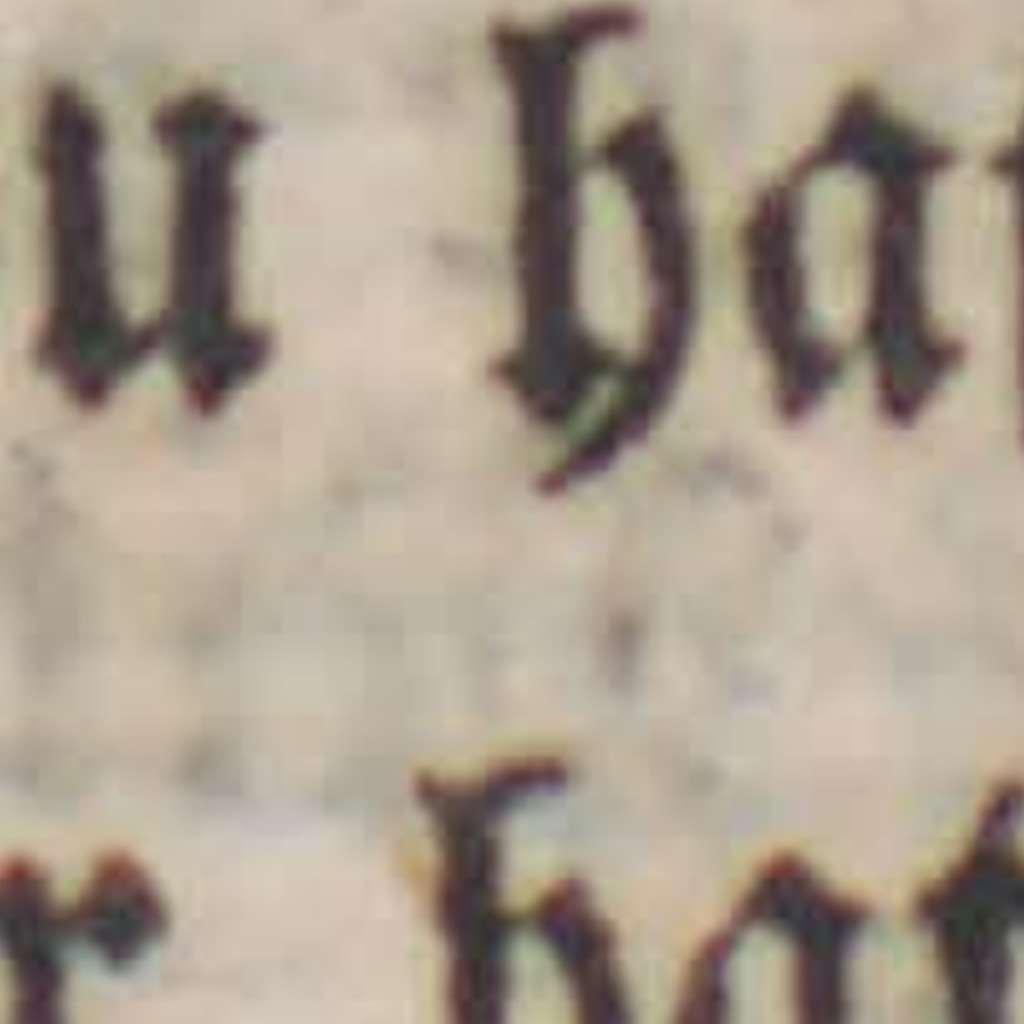 u ha
r hat